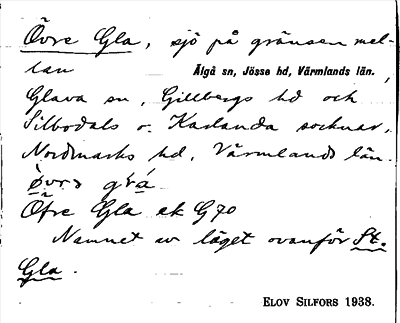 Övre Gla, sjö på gränsen mel-
lan Älgå sn, Jösse hd, Värmlands län. ,
Glava sn, Gillbergs hd och
Silbodals o. Karlanda socknar,
Nordmarks hd, Värmlands län.
Öfre Gla ek G70
Namnet av läget ovanför St.
Gla.
ELOV SILFORS 1938.